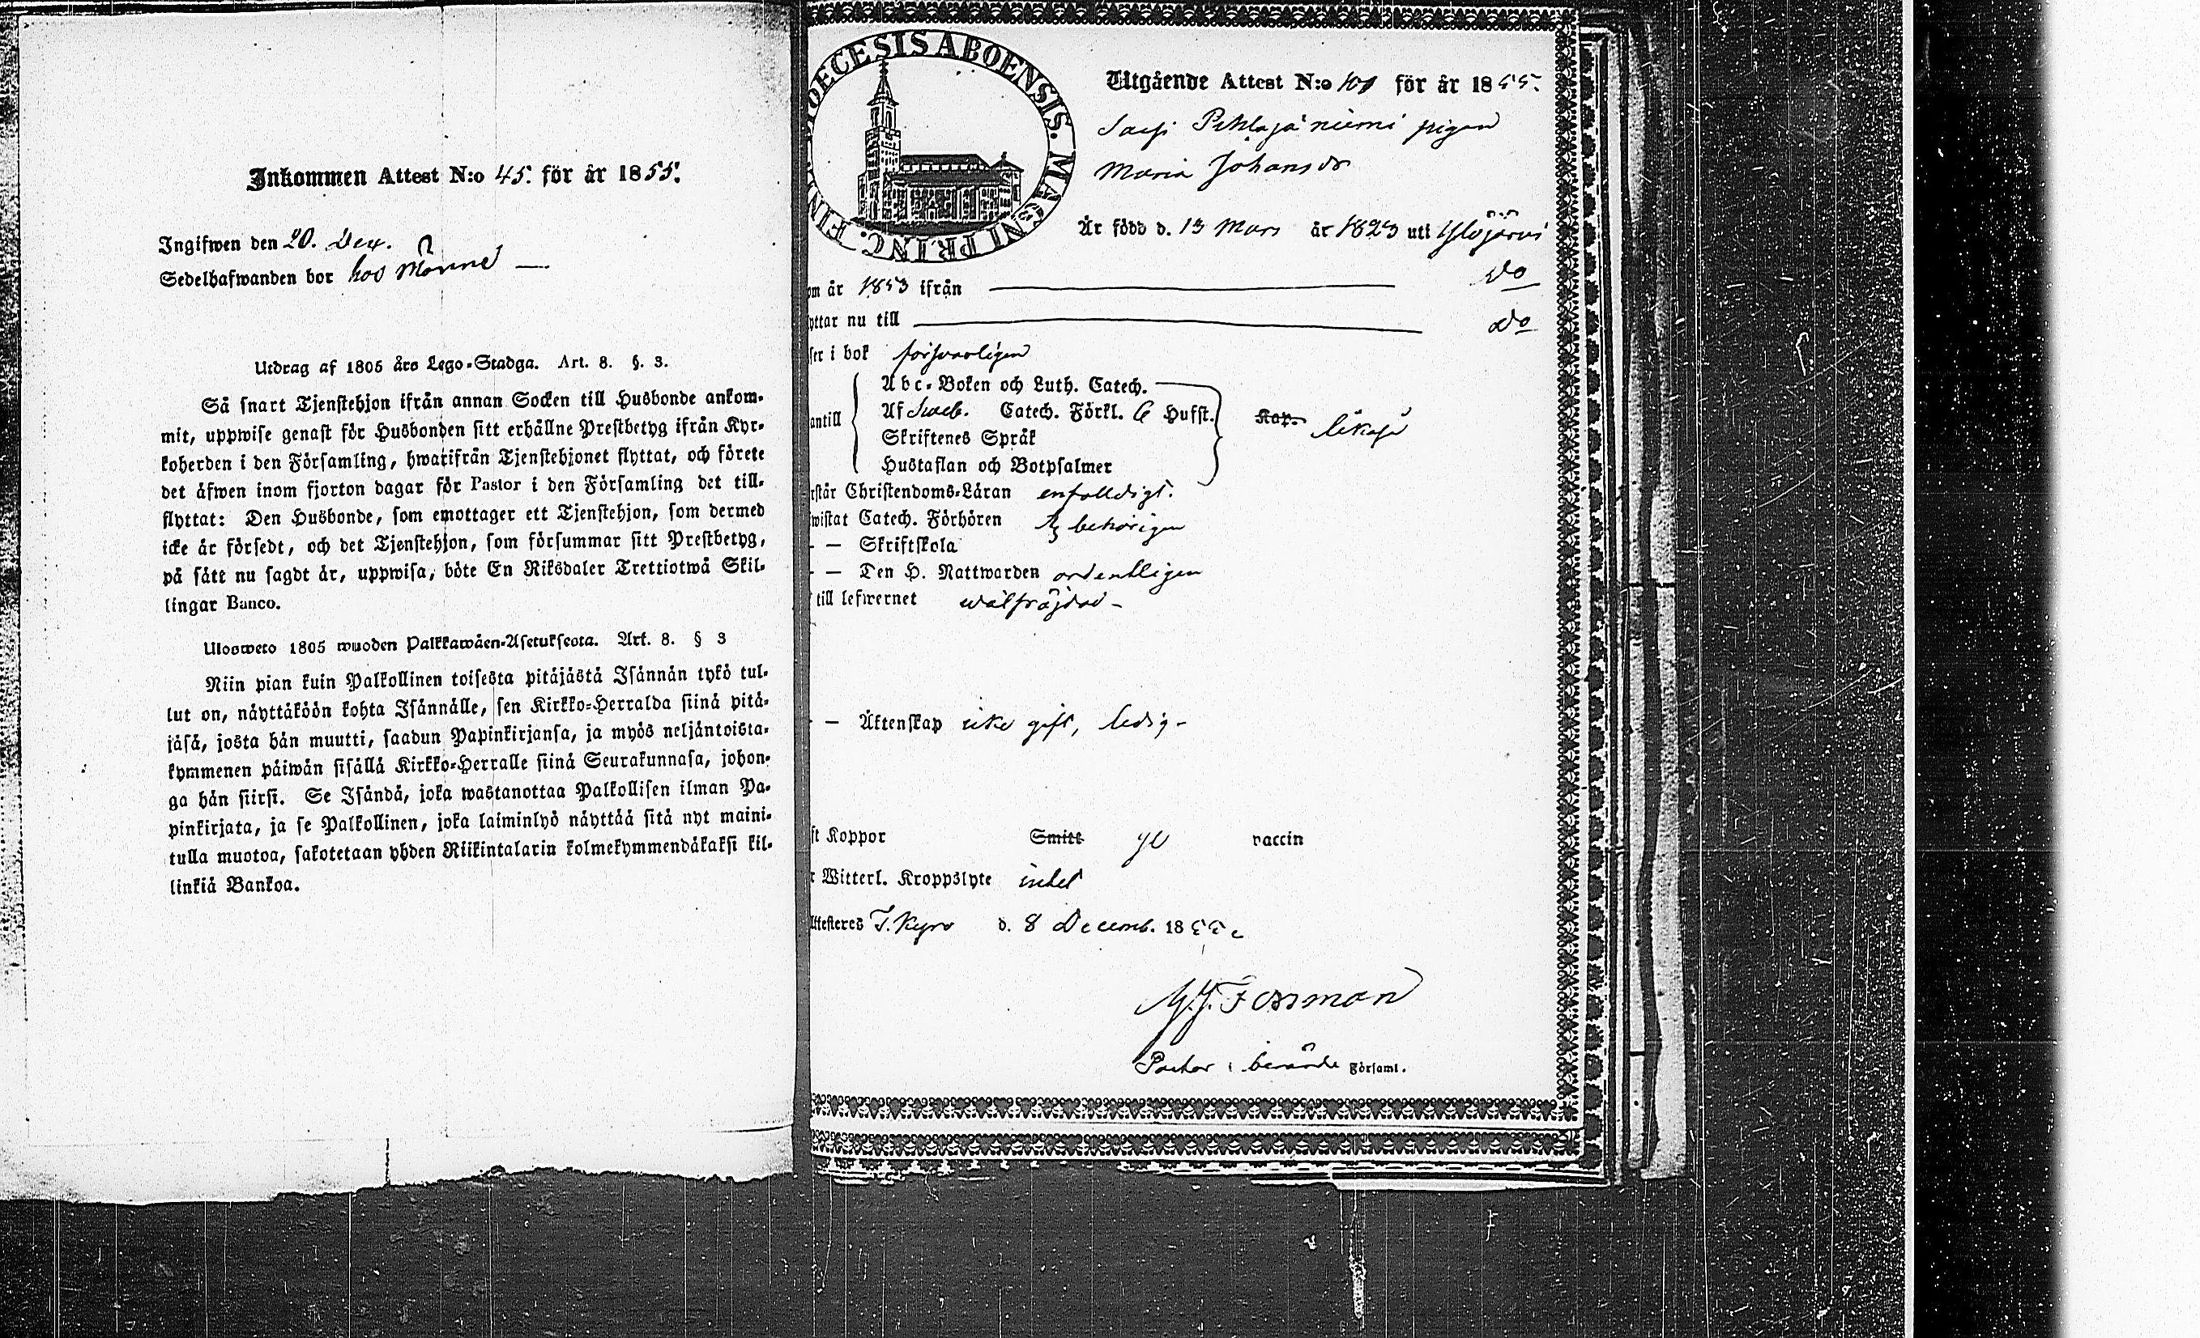 Inkommen Attest N:o 45. för år 1855.
Ingifwen den 20. Dec.
Sedelhafwanden bor hos
Utdrag af 1805 års Lego-Stadga. Art. 8. §. 3.
Så snart Tjenstehjon ifrån annan Socken till Husbonde ankom-
mit, uppwise genast för Husbonden sitt erhållne Prestbetyg ifrån Kyr-
koherden i den Församling, hwarifrån Tjenstehjonet flyttat, och förete
det äfwen inom fjorton dagar för Pastor i den Församling det till-
flyttat: Den Husbonde, som emottager ett Tjenstehjon, som dermed
icke är försedt, och det Tjenstehjon, som försummar sitt Prestbetyg,
på sätt nu sagdt är, uppwisa, böte En Riksdaler Trettiotwå Skil-
lingar Banco.
Ulosweto 1805 wuoden Palkkawäen-Asetuksesta. Art. 8. § 3
Niin pian kuin Palkollinen toisesta pitäjästä Isännän tykö tul-
lut on, näyttäköön kohta Isännälle, sen Kirkko-Herralda siinä pitä-
jäsä, josta hän muutti, saadun Papinkirjansa, ja myös neljäntoista-
kymmenen päiwän sisällä Kirkko-Herralle siinä Seurakunnasa, johon-
ga hän siirsi. Se Isändä, joka wastanottaa Palkollisen ilman Pa-
pinkirjata, ja se Palkollinen, joka laiminlyö näyttää sitä nyt maini-
tulla muotoa, sakotetaan yhden Riikintalarin kolmekymmendäkaksi kil-
linkiä Bankoa.
DIOECESIS ABOENSIS. MAGNI PRINC. FINL.
Utgående Attest N:o för år 1855.
Pihlajaniemi pigan
Maria Johansdr
Är född d. 13 Mars år 1823 uti Ylöjärvi
om år 1853 ifrån Do
yttar nu till Do
ser i bok försvarligen
Abc-Boken och Luth. Catech.
antill Af Sweb. Catech. Förkl. 6 Hufst. Kap. likaså
Skriftenes Språk
Hustaflan och Botpsalmer
rstår Christendoms-Läran enfaldigt.
wistat Catech. Förhören behörigen
- — Skriftskola
- — Den H. Nattwarden ordentligen
till lefwernet wälfräjdad -
- — Äktenskap icke gift, ledig -
ft Koppor Smitt gl vaccin
r Witterl. Kroppslyte intet
Attesteres T. Kyro d. 8 Decemb. 1855.
M. J. Forsman
Pastor i berörde Församl.